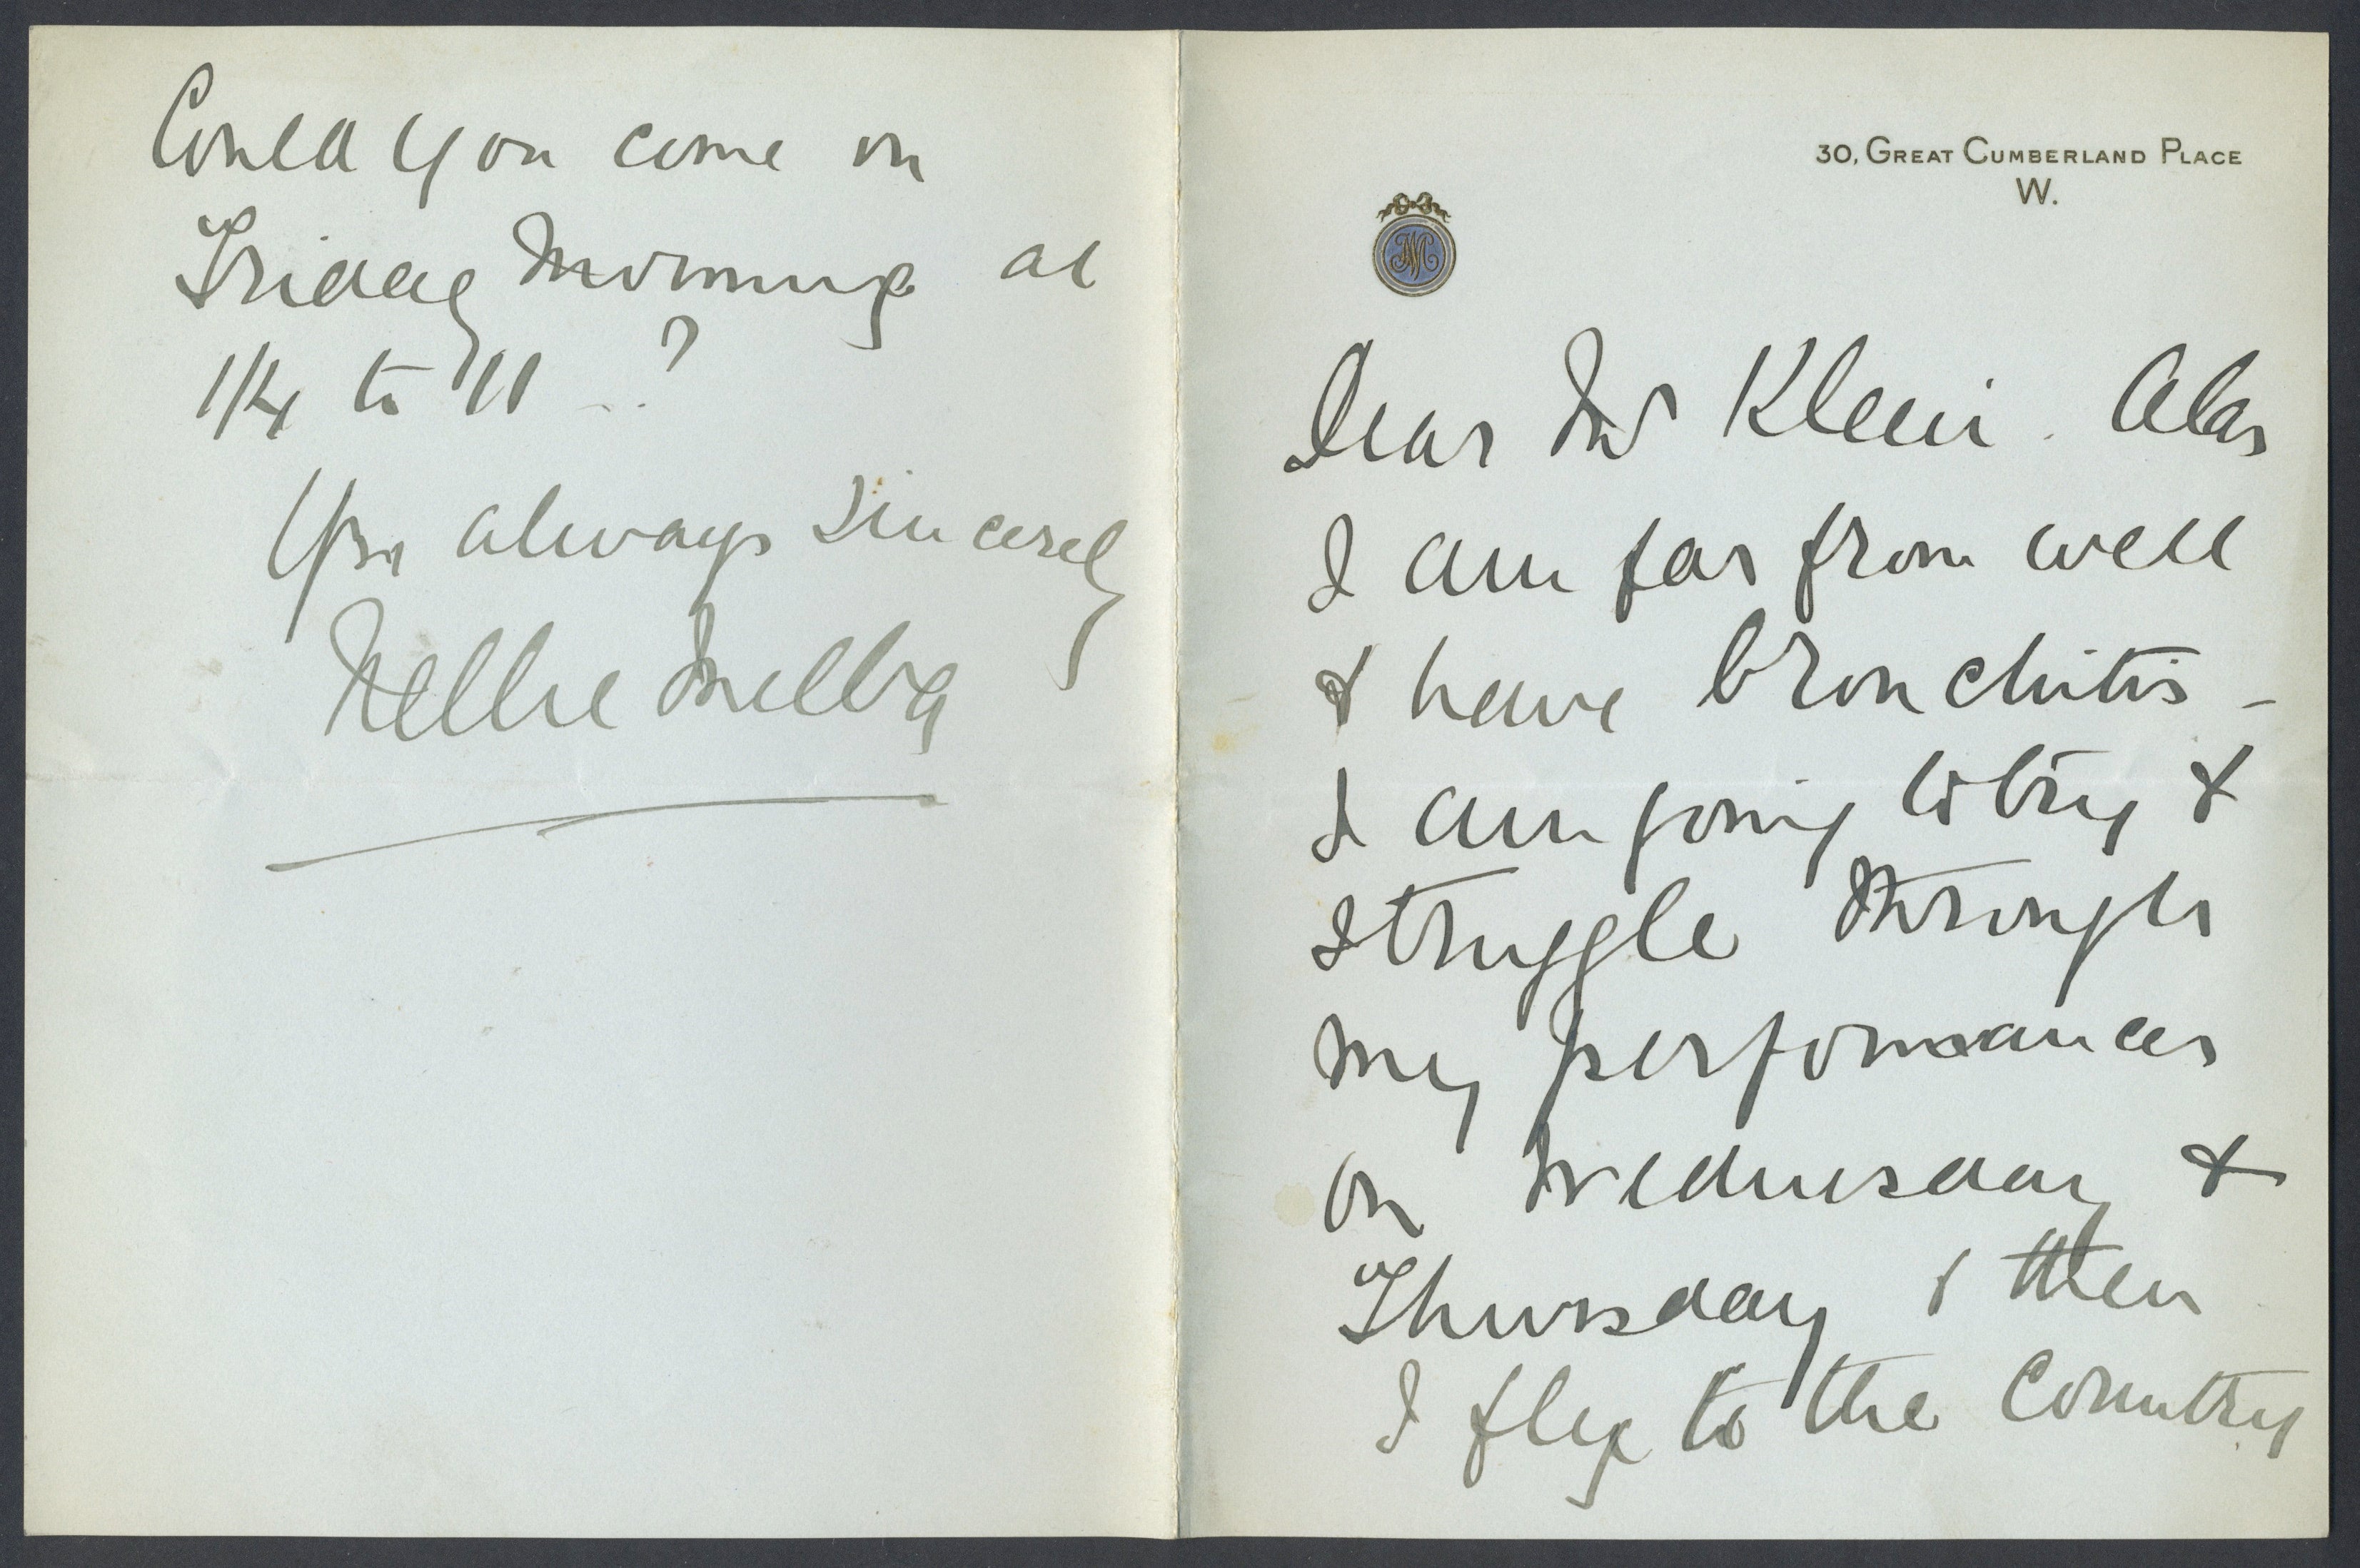 30, GREAT CUMBERLAND PLACE
W.
NM
Dear Mr Klein. Alas
I am far from well
& have bronchitis -
I am going to try &
struggle through
my performances
on Wednesday &
Thursday & then
I fly to the Country
Could you come on
Friday morning at
1/4 to 11 - ?
Yrs always sincerely
Nellie Melba